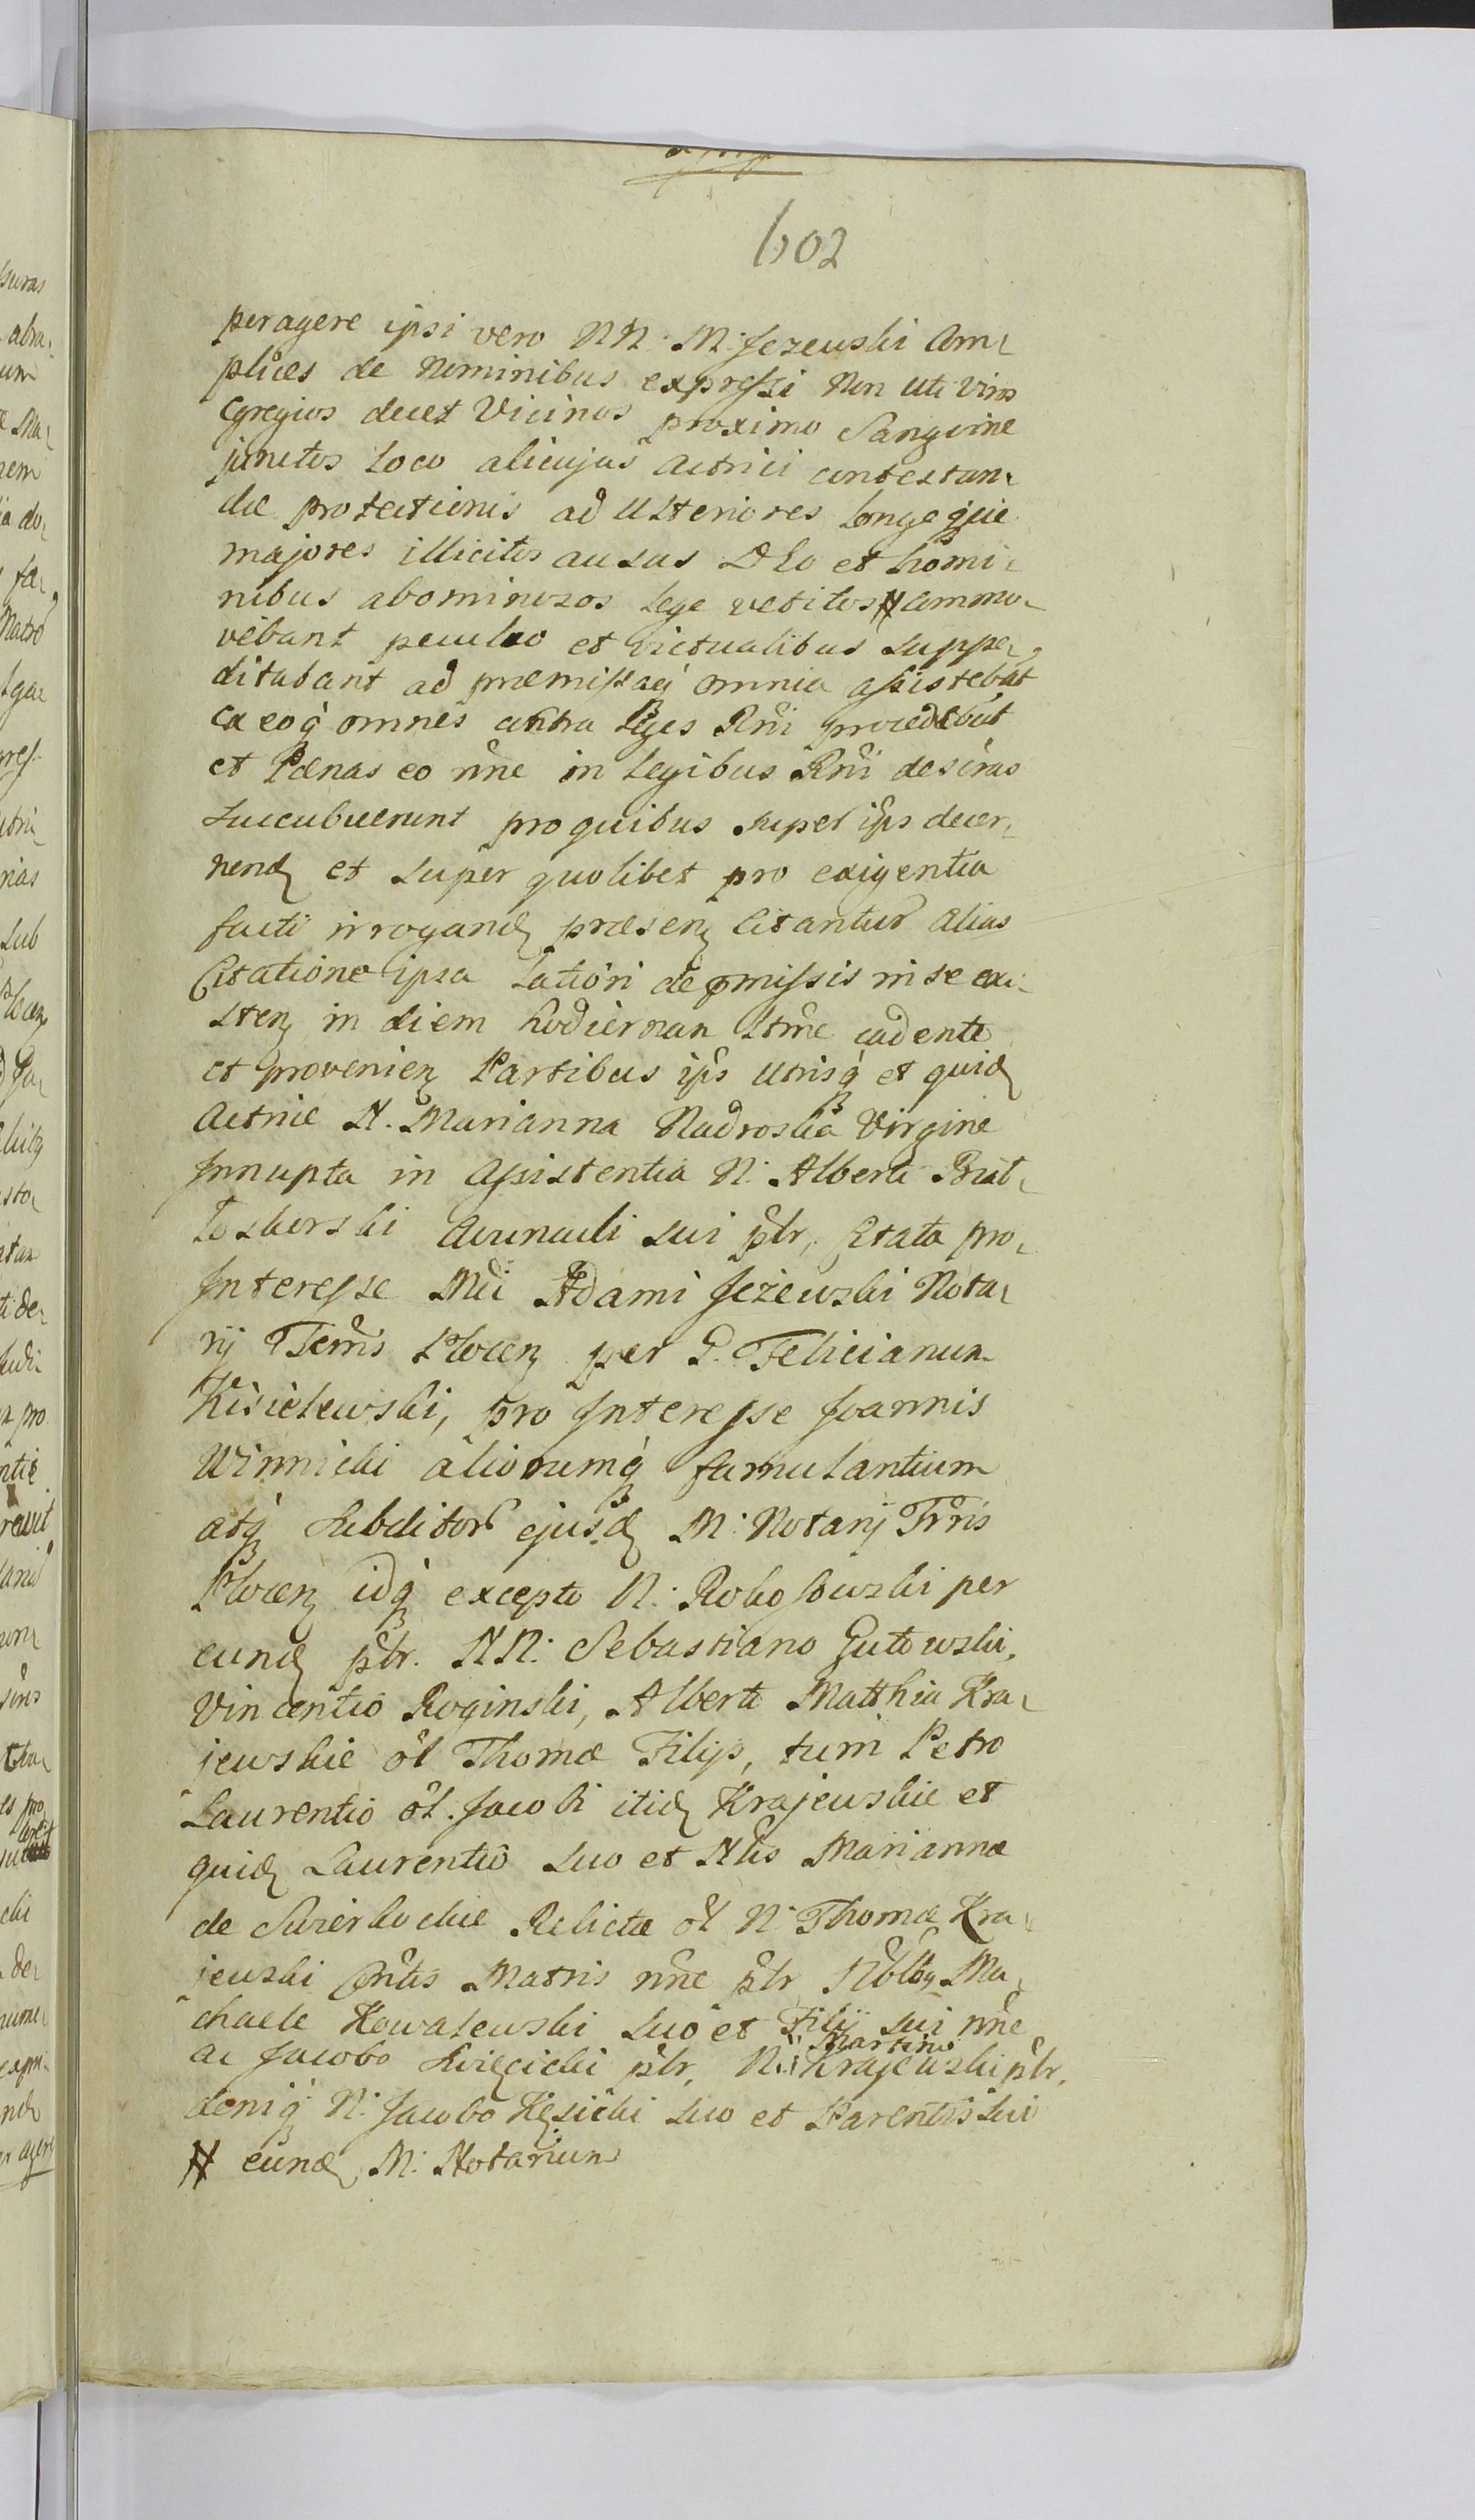 602
peragere ipsi vero NN: M: Jezewski Com-
plices de Nominibus expressi Non uti viros
Egregios decet Vicinos proximo Sanguine
junctos Loco alicujus Actrici contestan-
dæ protectionis ad ulteriores longeque
majores illicitos ausus DEo et homi-
nibus abominosos Lege vetitos # commo-
vebant peculio et victualibus suppe-
ditabant ad præmissaq omnia assistebāt
ex eoq omnes contra Leges Rni procedebāt
et Pœnas eo nne in Legibus Rni desčras
succubuerunt pro quibus super ips decer-
nend et super quolibet pro exigentia
facti irrogand præsen Citantur alias
Citatione ipsa Latiori de pmissis in se exi-
sten in diem hodiernam Ltme cadente
et provenien Partibus ips utrisq et quid
Actrice N. Marianna Nadroska Virgine
Innupta in Assistentia N: Alberti Biał-
Avunculi sui pltr, Citato pro
Interesse Mci Adami Jeżewski Nota-
rij Terris Plocen per G. Felicianum
Kisielewski, pro Interesse Joannis
Winnicki aliorumq famulantium
atq Subditor ejusd M: Notarij Trris
Plocen idq excepto N: Rokossowski per
eund pltr. NN: Sebastiano Gutowski,
Vincentio Roginski, Alberto Matthia Kra-
jewskie ol Thomæ Filijs, tum Petro
Laurentio ol. Jacobi itid Krajewskie et
quid Laurentio suo et Nlis Marianna
de Swierkockie Relictæ ol N: Thomæ Kra-
jewski Matris nne pltr Ma-
chaele Kowalewski suo et Filij sui nne
ac Jacobo pltr, N: Martino Krajewski pltr,
deniq N: Jacobo Kęsicki suo et Parentis sui
# eund M: Notarium